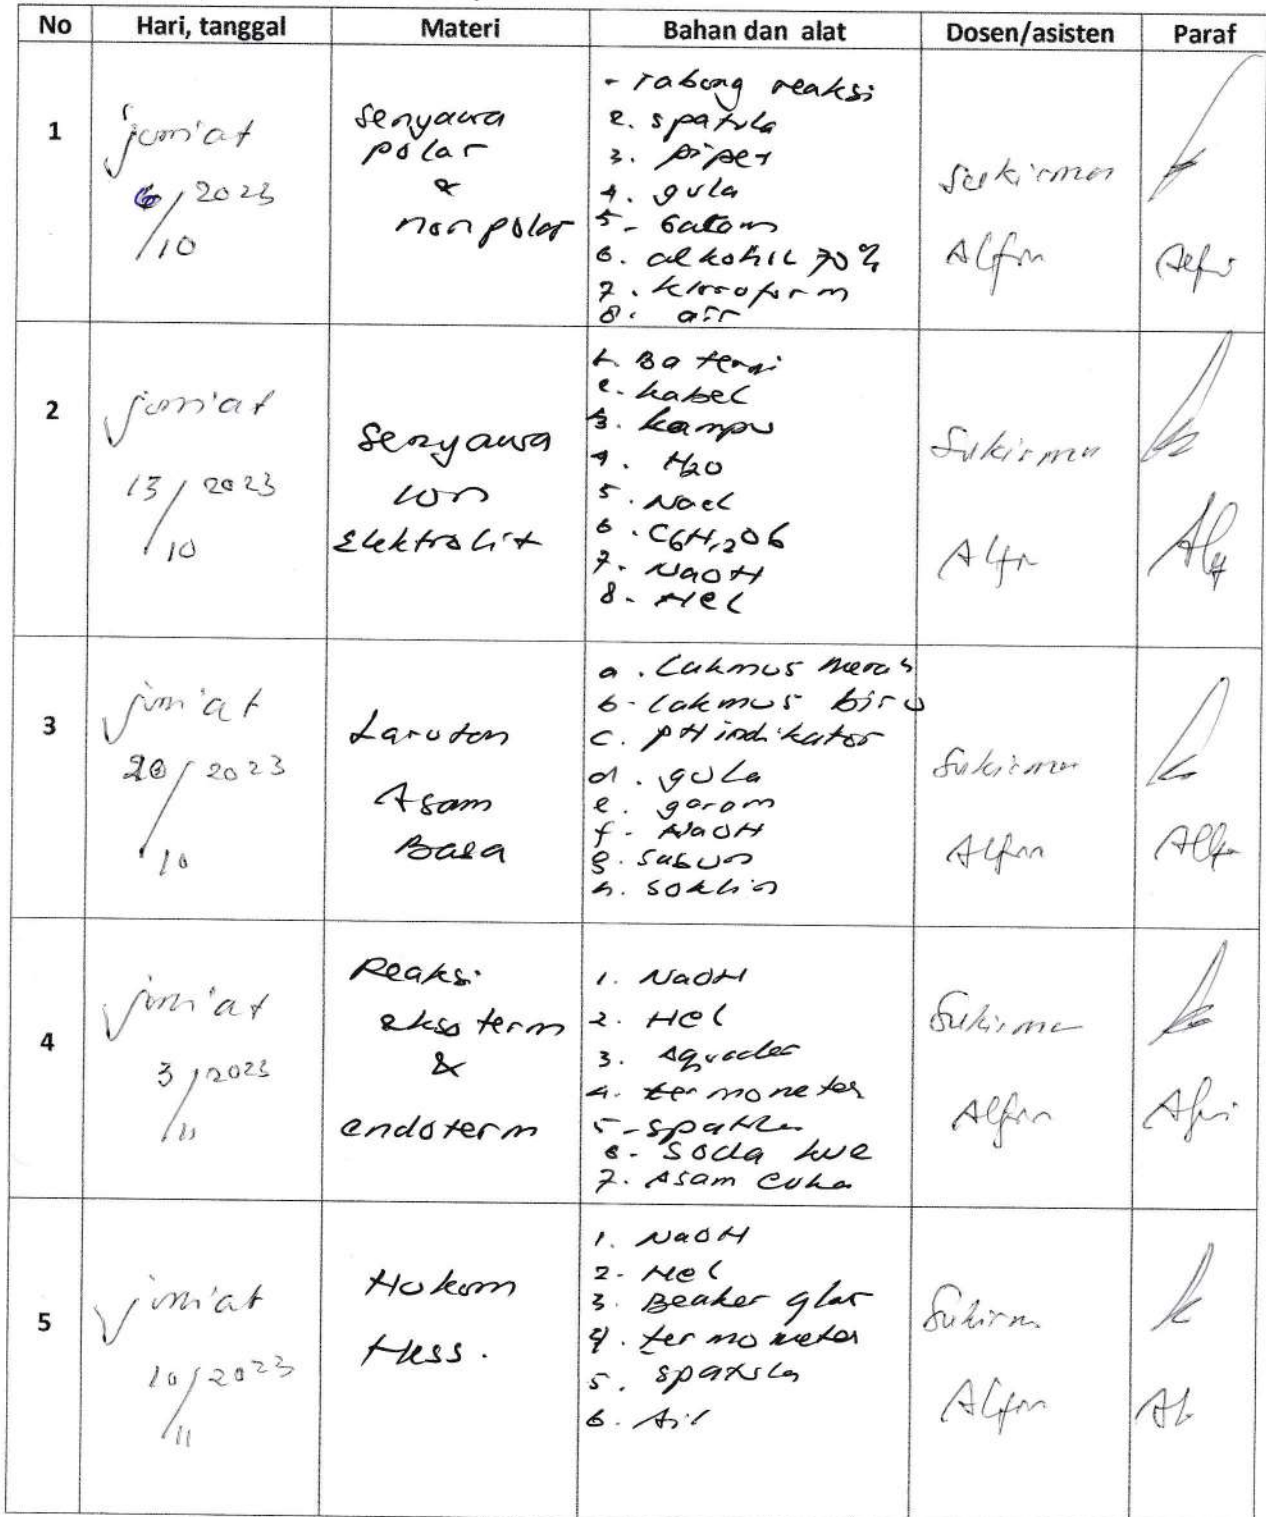 No Hari, tanggal Materi Bahan dan alat Dosen/asisten Paraf
1
jum'at
6/2023
/10
Senyawa
polar
&
nonpolar
- Tabung reaksi
2. spatula
3. pipet
4. gula
5. Garam
6. alkohil 70%
7. kloroform
8. air
Sukirman
Alfin
2
jum'at
13/2023
/10
Senyawa
ion
Elektrolit
1. Baterai
2. kabel
3. lampu
4. H2O
5. NaCl
6. C6H12O6
7. NaOH
8. HCl
Sukirman
Alfin
3
jum'at
20/2023
/10
Larutan
Asam
Basa
a. Lakmus merah
b. lakmus biru
c. pH indikator
d. gula
e. garam
f. NaOH
g. sabun
h. soklin
Sukirman
Alfin
4
jum'at
3/2023
/11
Reaksi
eksoterm
&
endoterm
1. NaOH
2. HCl
3. Aquades
4. termometer
5. spatula
6. Soda kue
7. Asam cuka
Sukirman
Alfin
5
jum'at
10/2023
/11
Hukum
Hess.
1. NaOH
2. HCl
3. Beaker glas
4. termometer
5. spatula
6. Air
Sukirm
Alfin